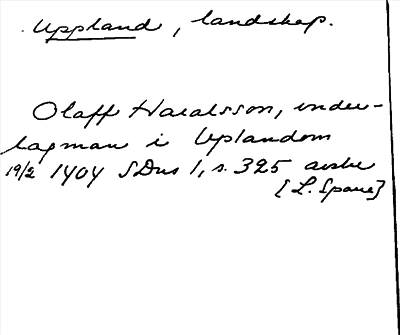 Uppland, landskap.
Olaff Haralsson, under-
lagman i Uplandom
19/2 1404 SDns 1, s. 325 avskr
[L. Spare]